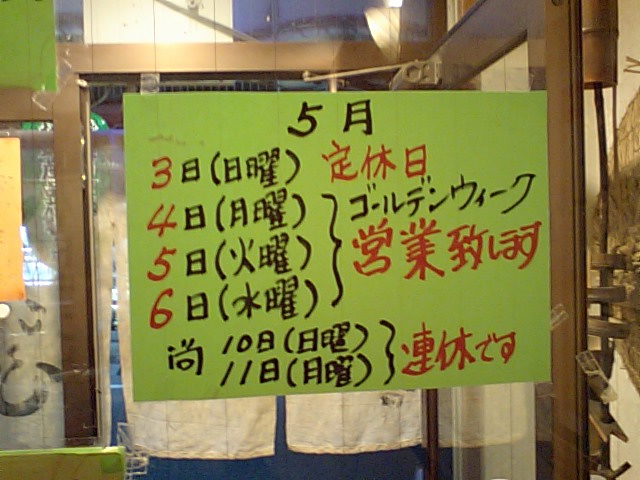 5月
3日(日曜) 定休日
4日(月曜)
5日(火曜)
6日(水曜)
ゴールデンウィーク
営業致します
尚 10日(日曜)
11日(月曜)
連休です